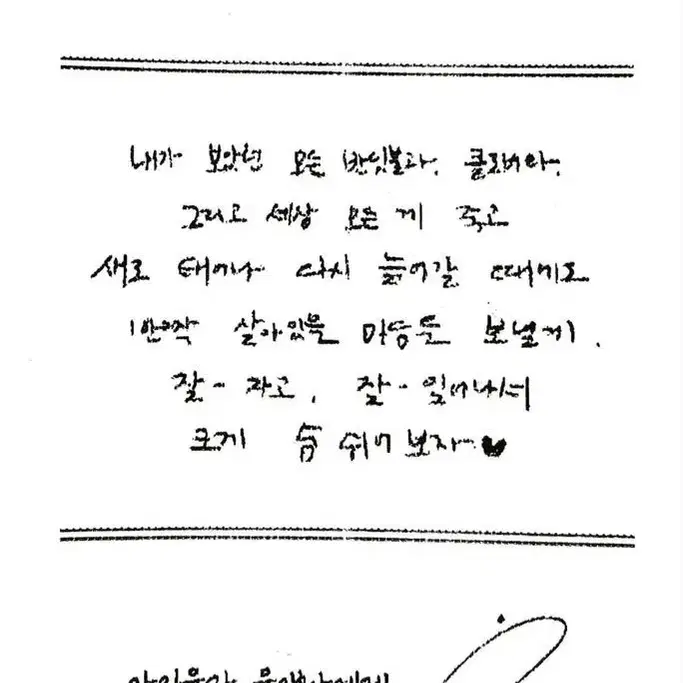 내가 보았던 모든 반딧불과, 클로버와,
그리고 세상 모든 게 죽고
새로 태어나 다시 늙어갈 때에도
반짝 살아있을 마음을 보낼게.
잘- 자고, 잘- 일어나서
크게 숨 쉬어 보자